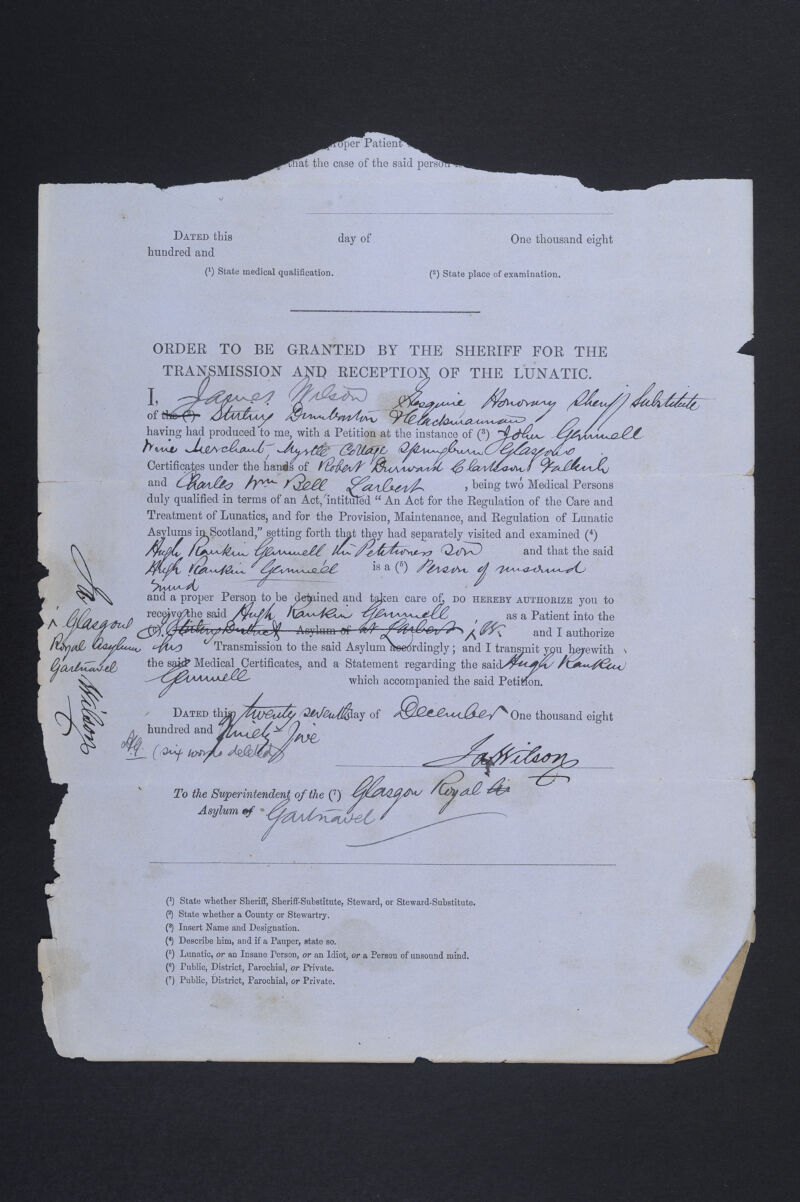 proper Patient
that the case of the said person
DATED this day of One thousand eight
hundred and
(¹) State medical qualification. (²) State place of examination.
ORDER TO BE GRANTED BY THE SHERIFF FOR THE
TRANSMISSION AND RECEPTION OF THE LUNATIC.
I, James Wilson Esquire Honorary Sheriff Substitute
of the (²) Stirling Dumbarton & Clackmannan
having had produced to me, with a Petition at the instance of (³) John Gemmell
Wine Merchant, Myrtle Cottage Springburn Glasgow
Certificates under the hands of Robert Clarkson Falkirk
and Charles Wm Bell Larbert, being two Medical Persons
duly qualified in terms of an Act, intituled “An Act for the Regulation of the Care and
Treatment of Lunatics, and for the Provision, Maintenance, and Regulation of Lunatic
Asylums in Scotland,” setting forth that they had separately visited and examined (⁴)
Hugh Rankin Gemmell the Petitioners son and that the said
Hugh Rankin Gemmell is a (⁵) Person of unsound
mind
and a proper Person to be detained and taken care of, DO HEREBY AUTHORIZE you to
receive the said Hugh Rankin Gemmell as a Patient into the
(⁶) Stirling District Asylum of at Larbert J.W. and I authorize
his Transmission to the said Asylum accordingly; and I transmit you herewith
the said Medical Certificates, and a Statement regarding the said Hugh Rankin
Gemmell which accompanied the said Petition.
Ja
x Glasgow
Royal Asylum
Gartnavel
Wilson
DATED this twenty seventh day of December One thousand eight
hundred and Ninety five
(six words deleted)
Ja Wilson
To the Superintendent of the (⁷) Glasgow Royal
Asylum of Gartnavel
(¹) State whether Sheriff, Sheriff-Substitute, Steward, or Steward-Substitute.
(²) State whether a County or Stewartry.
(³) Insert Name and Designation.
(⁴) Describe him, and if a Pauper, state so.
(⁵) Lunatic, or an Insane Person, or an Idiot, or a Person of unsound mind.
(⁶) Public, District, Parochial, or Private.
(⁷) Public, District, Parochial, or Private.